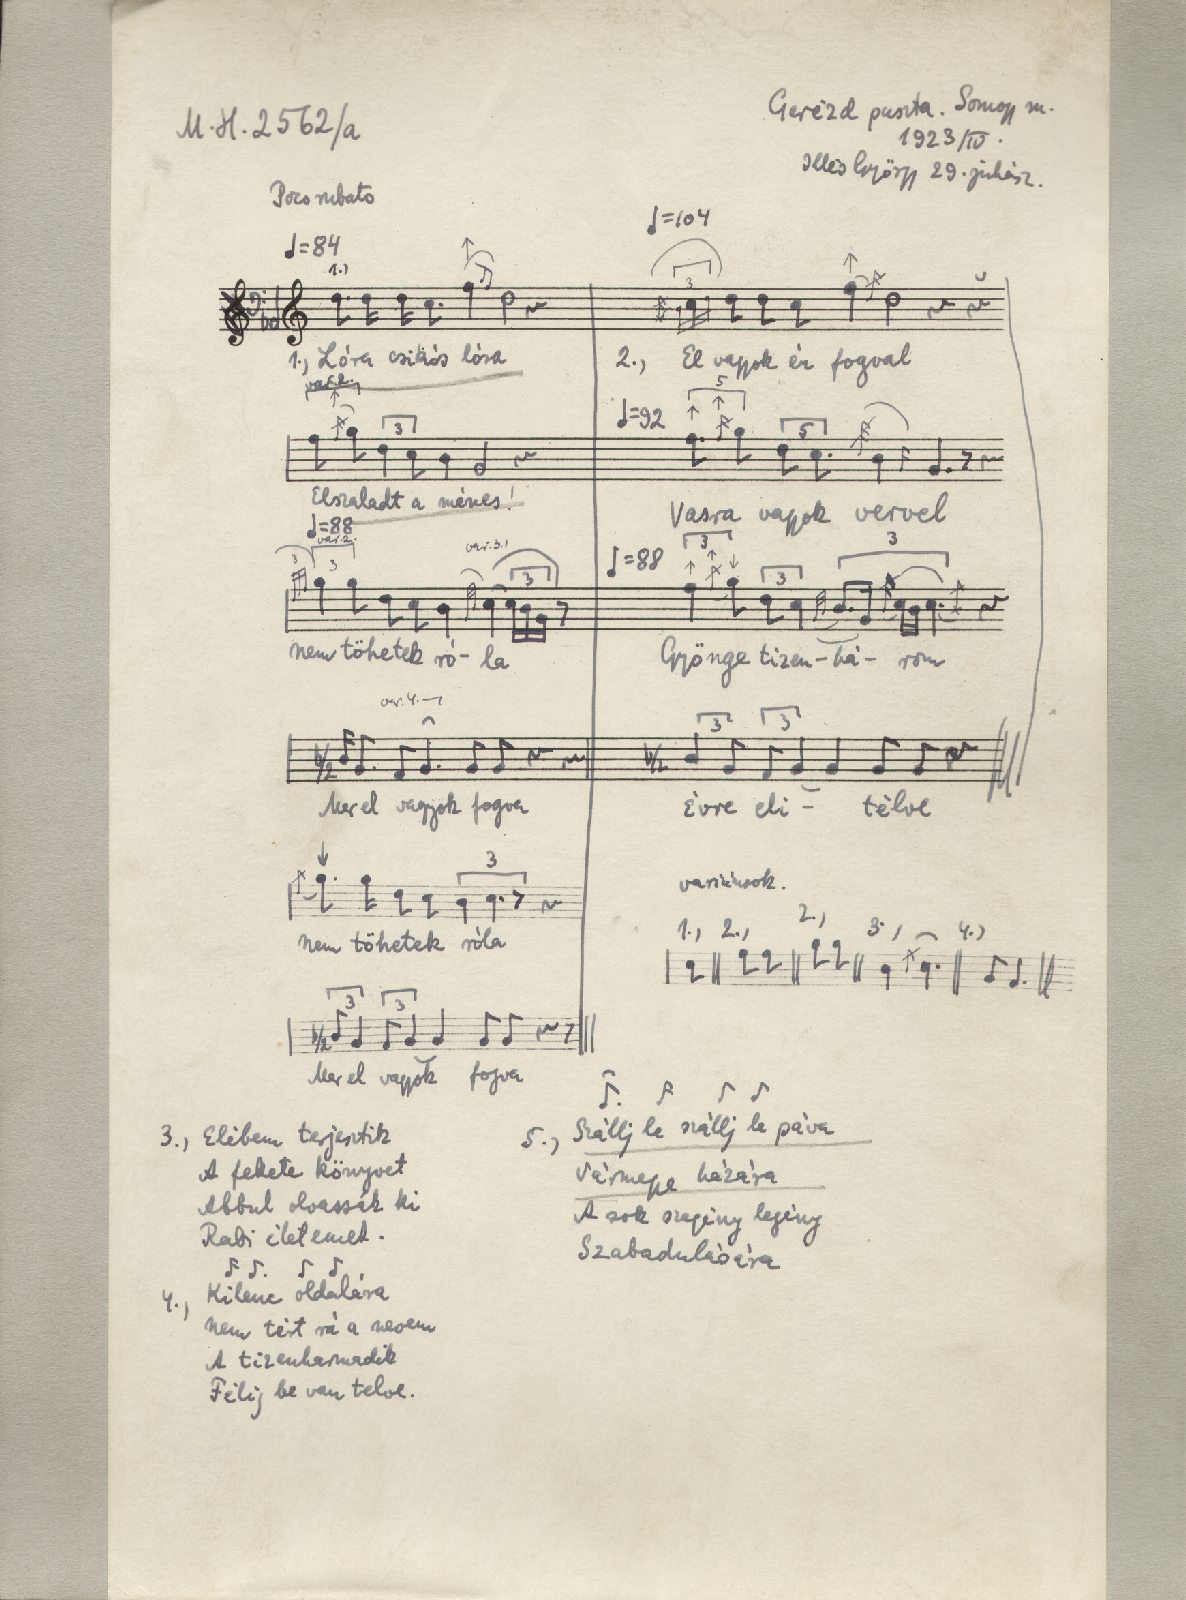 M.H. 2562/a
Gerézd puszta. Somogy m.
1923/IV.
Illés György 29. juhász.
Poco rubato
♩=84
♩=104
1.)
3
1., Lóra csikós lóra
2., El vagyok én fogval
var.2.
♩=92
5
3
5
Elszaladt a ménes!
Vasra vagyok vervel
♩=88
var.2.
var.3.)
3
3
3
♩=88
3
3
3
nem töhetek ró- la
Gyönge tizen-há- rom
var.4.
3
3
Mer el vagyok fogva
Évre eli - télve
3
nem töhetek róla
variánsok.
1., 2., 2., 3., 4.,
3
3
Mer el vagyok fogva
3., Elébem terjesztik
A fekete könyvet
Abbul olvassák ki
Rabi életemet.
4., Kilenc oldalára
Nem tért rá a nevem
A tizenharmadik
Félig be van telve.
5., Szállj le szállj le páva
Vármegye házára
A sok szegény legény
Szabadulására